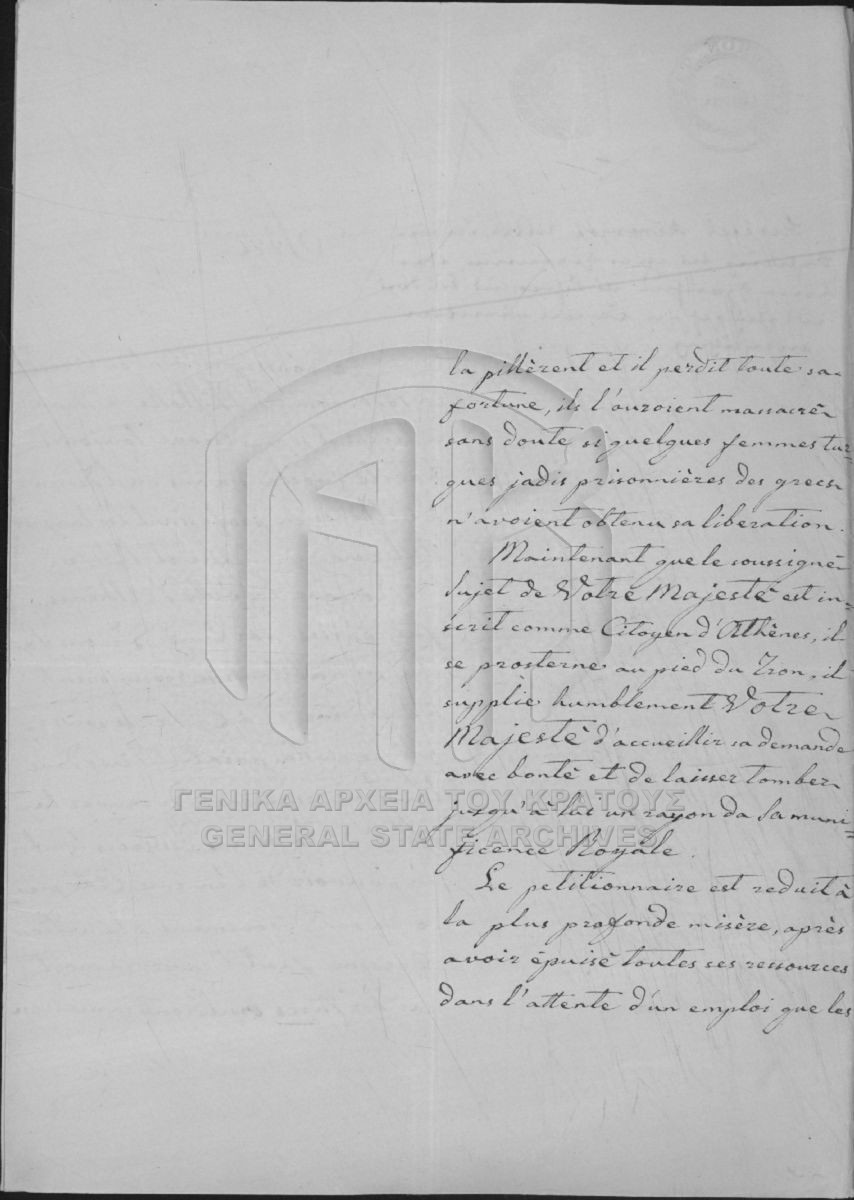 la pillèrent et il perdit toute sa
fortune, ils l'auroient massacré
sans doute si quelques femmes tur=
ques jadis prisonnières des grecs
n'avoient obtenu sa liberation.
Maintenant que le soussigné
Sujet de Votre Majesté est in=
scrit comme Citoyen d'Athènes, il
se prosterne au pied du Tron, il
supplie humblement Votre
Majesté d'accueillir sa demande
avec bonté et de laisser tomber
jusqu'à lui un rayon da Sa muni=
ficence Royale.
Le petitionnaire est reduit à
la plus profonde misère, après
avoir épuisé toutes ses ressources
dans l'attente d'un emploi que les
ΓΕΝΙΚΑ ΑΡΧΕΙΑ ΤΟΥ ΚΡΑΤΟΥΣ
GENERAL STATE ARCHIVES